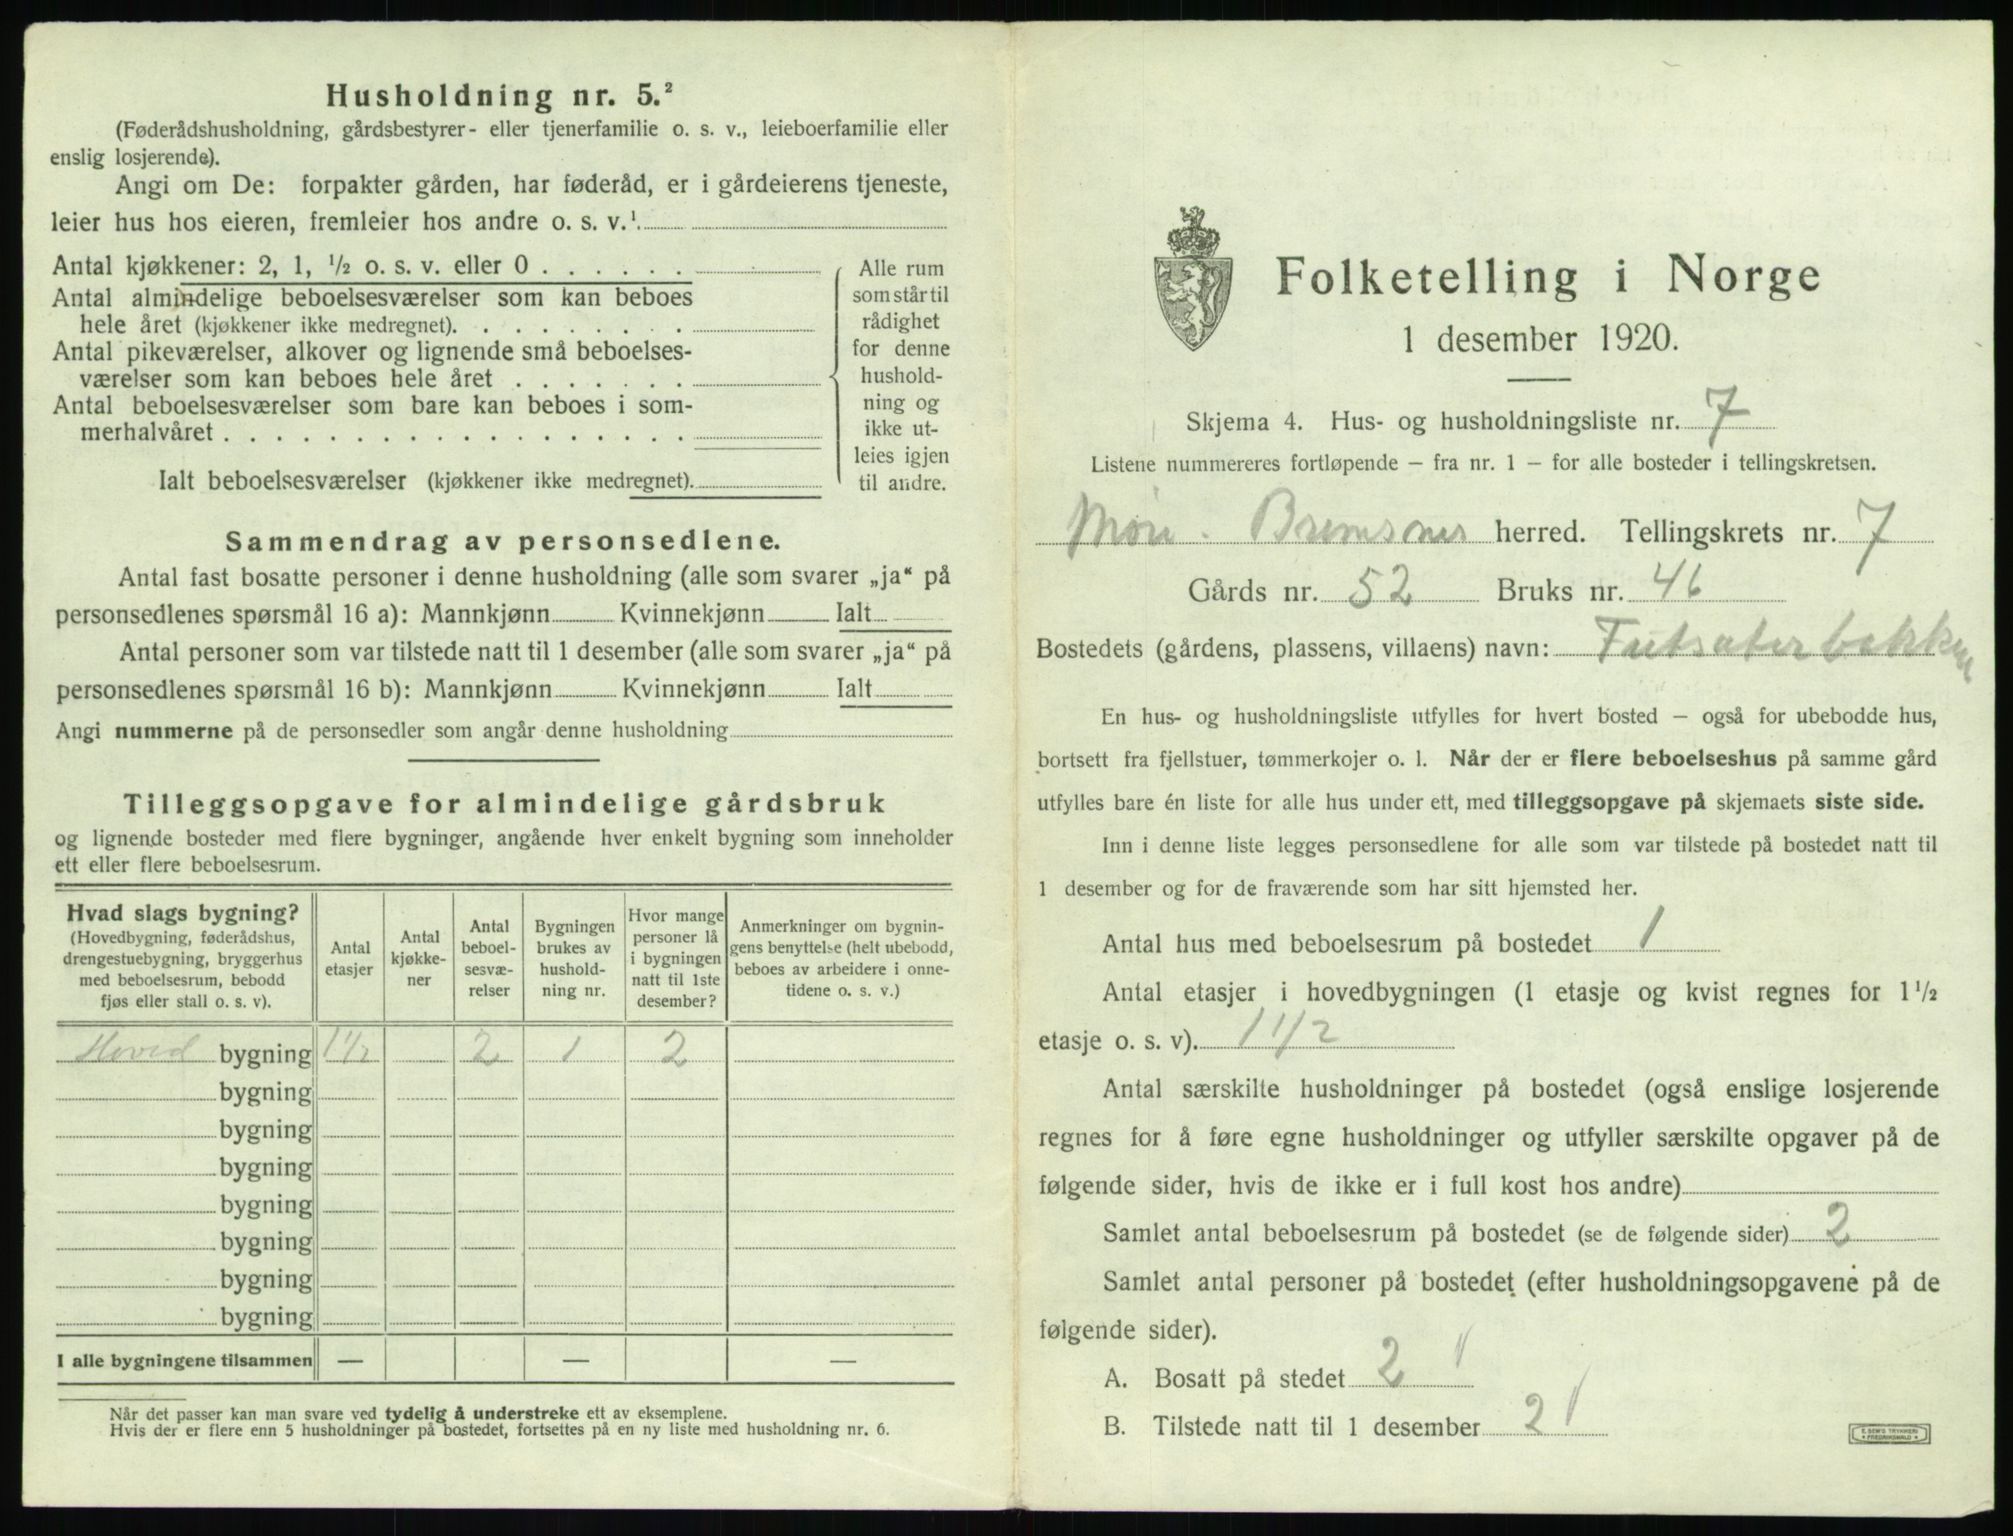 Husholdning nr. 5.²
(Føderådshusholdning, gårdsbestyrer- eller tjenerfamilie o. s. v., leieboerfamilie eller
enslig losjerende).
Angi om De: forpakter gården, har føderåd, er i gårdeierens tjeneste,
leier hus hos eieren, fremleier hos andre o. s. v.¹
Antal kjøkkener: 2, 1, ½ o. s. v. eller 0 . . . . . .
Antal almindelige beboelsesværelser som kan beboes
hele året (kjøkkener ikke medregnet). . . . . . . . .
Antal pikeværelser, alkover og lignende små beboelses-
værelser som kan beboes hele året . . . . . . .
Antal beboelsesværelser som bare kan beboes i som-
merhalvåret . . . . . . . . . . . . . . . . . .
Ialt beboelsesværelser (kjøkkener ikke medregnet).
Alle rum
som står til
rådighet
for denne
hushold-
ning og
ikke ut-
leies igjen
til andre.
Sammendrag av personsedlene.
Antal fast bosatte personer i denne husholdning (alle som svarer „ja“ på
personsedlenes spørsmål 16 a): Mannkjønn Kvinnekjønn Ialt
Antal personer som var tilstede natt til 1 desember (alle som svarer „ja“ på
personsedlenes spørsmål 16 b): Mannkjønn Kvinnekjønn Ialt
Angi nummerne på de personsedler som angår denne husholdning
Tilleggsopgave for almindelige gårdsbruk
og lignende bosteder med flere bygninger, angående hver enkelt bygning som inneholder
ett eller flere beboelsesrum.
Hvad slags bygning?
(Hovedbygning, føderådshus,
drengestuebygning, bryggerhus
med beboelsesrum, bebodd
fjøs eller stall o. s. v).
Antal
etasjer
Antal
kjøkke-
ner
Antal
beboel-
sesvæ-
relser
Bygningen
brukes av
hushold-
ning nr.
Hvor mange
personer lå
i bygningen
natt til 1ste
desember?
Anmerkninger om bygnin-
gens benyttelse (helt ubebodd,
beboes av arbeidere i onne-
tidene o. s. v.)
Hoved bygning 1½ 2 1 2
bygning
bygning
bygning
bygning
bygning
bygning
bygning
I alle bygningene tilsammen — — —
Når det passer kan man svare ved tydelig å understreke ett av eksemplene.
Hvis der er flere enn 5 husholdninger på bostedet, fortsettes på en ny liste med husholdning nr. 6.
Folketelling i Norge
1 desember 1920.
Skjema 4. Hus- og husholdningsliste nr. 7
Listene nummereres fortløpende — fra nr. 1 — for alle bosteder i tellingskretsen.
Møre. Bremsnes herred. Tellingskrets nr. 7
Gårds nr. 52 Bruks nr. 46
Bostedets (gårdens, plassens, villaens) navn:
En hus- og husholdningsliste utfylles for hvert bosted — også for ubebodde hus,
bortsett fra fjellstuer, tømmerkojer o. l. Når der er flere beboelseshus på samme gård
utfylles bare én liste for alle hus under ett, med tilleggsopgave på skjemaets siste side.
Inn i denne liste legges personsedlene for alle som var tilstede på bostedet natt til
1 desember og for de fraværende som har sitt hjemsted her.
Antal hus med beboelsesrum på bostedet 1
Antal etasjer i hovedbygningen (1 etasje og kvist regnes for 1½
etasje o. s. v). 1½
Antal særskilte husholdninger på bostedet (også enslige losjerende
regnes for å føre egne husholdninger og utfyller særskilte opgaver på de
følgende sider, hvis de ikke er i full kost hos andre)
Samlet antal beboelsesrum på bostedet (se de følgende sider) 2
Samlet antal personer på bostedet (efter husholdningsopgavene på de
følgende sider).
A. Bosatt på stedet 2
B. Tilstede natt til 1 desember 2
E. SEM'S TRYKKERI
• FREDRIKSHALD •